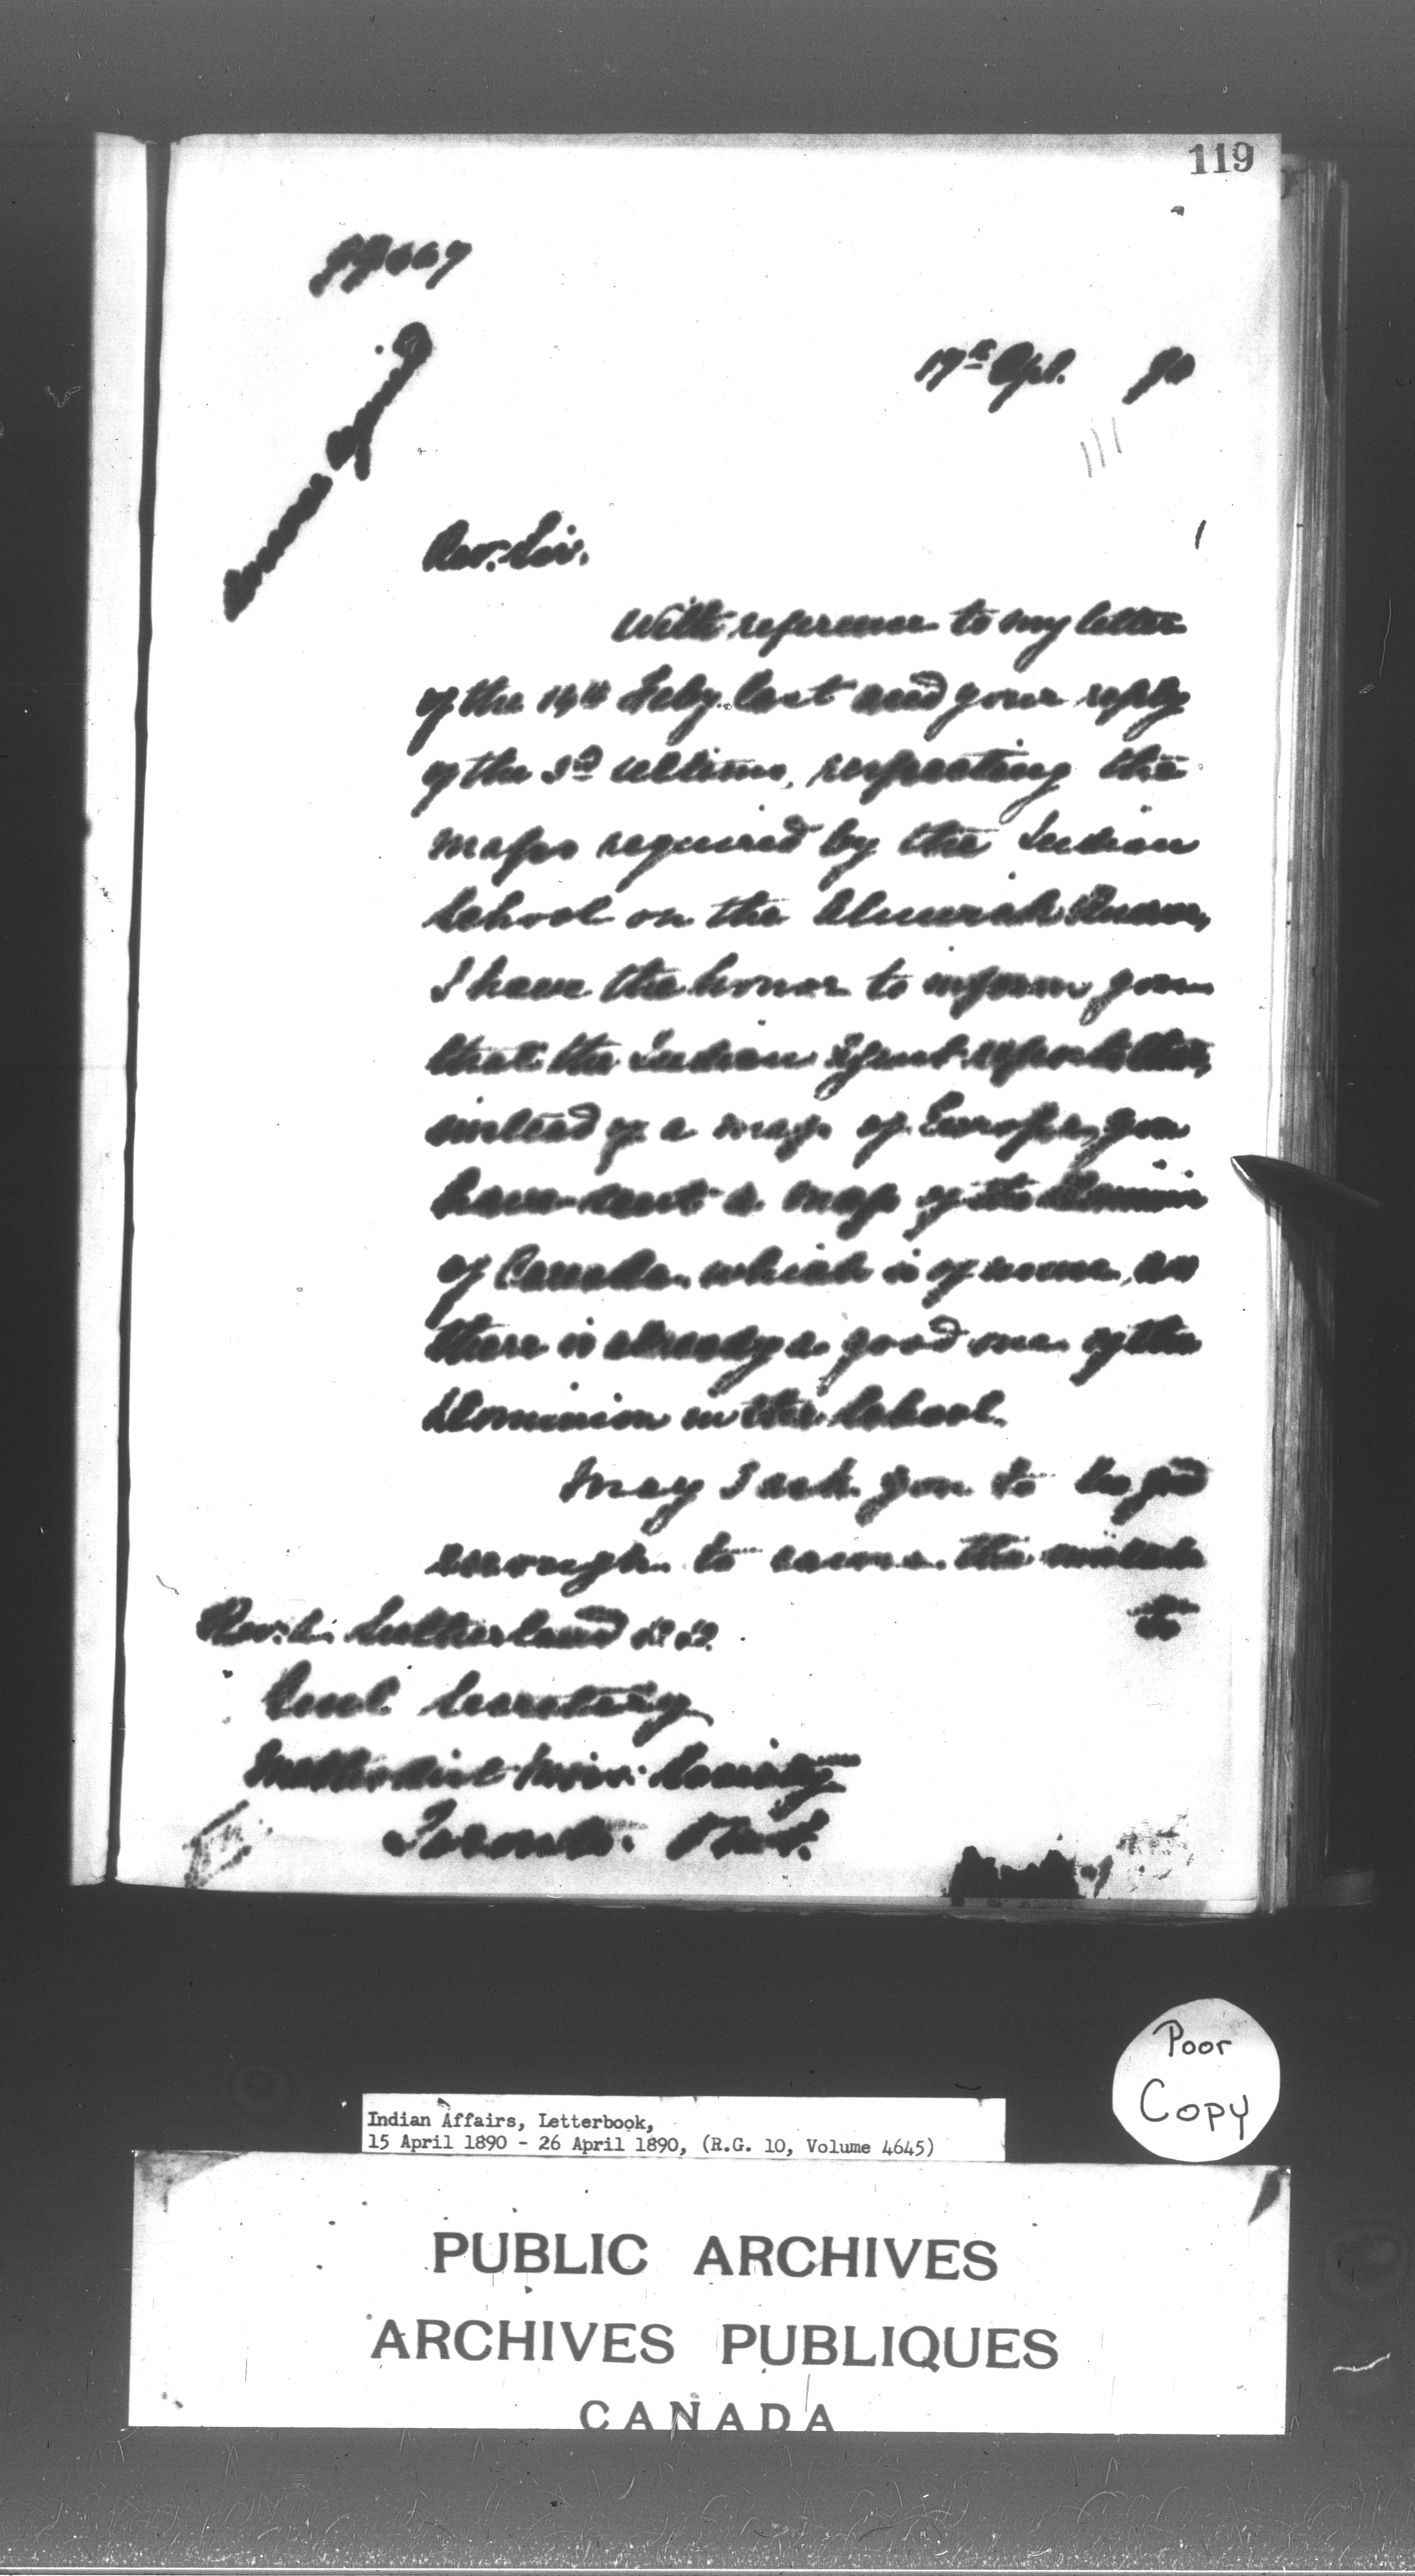 119
17th Apl. 90
Rev. Sir,
With reference to my letter
of the 14th Feby. last and your reply
of the 3rd ultimo, respecting the
maps required by the Indian
School on the Alnwick
I have the honor to inform you
that the Indian Agent reports that,
instead of a map of Europe, you
have sent a map of the Dominion
of Canada which is of no use, as
there is already a good one of the
Dominion in the School.
May I ask you to be good
enough to cause the mistake
to
Rev. A. Sutherland D.D.
Genl. Secretary
Methodist Miss. Society
Toronto. Ont.
Poor
Copy
Indian Affairs, Letterbook,
15 April 1890 - 26 April 1890, (R.G. 10, Volume 4645)
PUBLIC ARCHIVES
ARCHIVES PUBLIQUES
CANADA